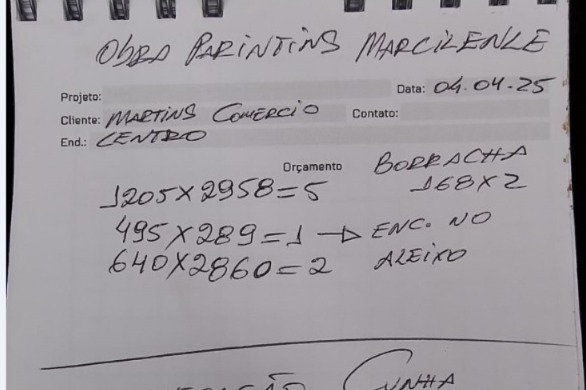 OBRA PARINTINS MARCILENLE
Projeto: Data: 04.04-25
Cliente: MARTINS COMERCIO Contato:
End.: CENTRO
Orçamento BORRACHA
1205X2958=5 168X2
495X289=1 → ENC. NO
640X2860=2 ALEIXO
CUNHA